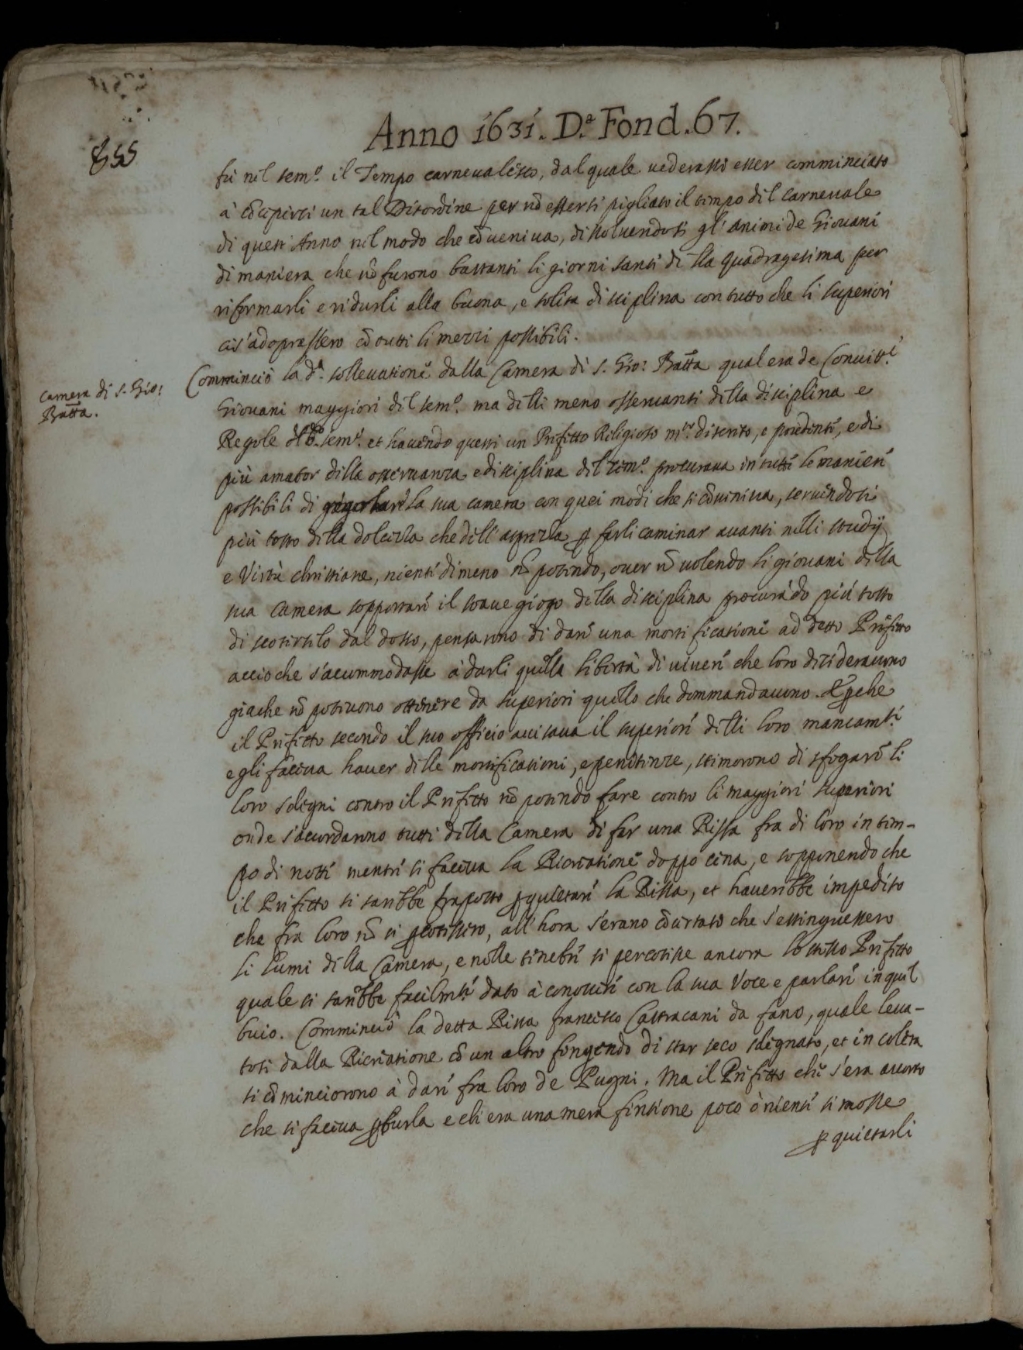 Anno 1631. D.ª Fond. 67.
855
fù nel sem.º il Tempo carnevalesco, dal quale vederassi esser comminciato
à cōcepirsi un tal Disordine per nō essersi pigliato il tempo del Carnevale
di quest'Anno nel modo che cōveniva, dissolvendosi gl'animi de Giovani
di maniera che nō furono bastanti li giorni santi della quadragesima per
riformarli e ridurli alla buona, e solita disciplina con tutto che li superiori
ciò s'adoprassero cō tutti li mezzi possibili.
camera di S. Gio:
Batta.
Comminciò la d.ª sollevatione dalla Camera di S. Gio: Batta qual era de Convitt.i
Giovani maggiori del sem.º ma delli meno osservanti della disciplina e
Regole del sem.º et havendo questi un Prefetto Religioso m.to discreto, e prudente, e di
più amator della osservanza e disciplina del sem.º procurava in tutte le maniere
possibili di la sua camera con quei modi che si cōveniva, servendosi
più tosto della dolcezza che dell'asprezza ꝑ farli caminar avanti nelli study
e Virtù christiane, nientedimeno nō potendo, over nō volendo li giovani della
sua camera sopportare il soave giogo della disciplina procurādo più tosto
di scotirselo dal dosso, pensarono di dare una mortificatione ad detto Prefetto
accioche s'accommodasse à darli quella libertà di vivere che loro desideravano
giache nō potevono ottenere da superiori quello che dommandavono. Et ꝑche
il Prefetto secondo il suo officio avisava il superiore delli loro mancam.ti
e gli faceva haver delle mortificationi, e penitenze, stimorono di sfogare li
loro sdegni contro il Prefetto nō potendo fare contro li maggiori superiori
onde s'acordarono tutti della Camera di far una Rissa fra di loro in tem-
po di notte mentre si faceva la Ricreatione doppo cena, e supponendo che
il Prefetto si sarebbe fraposto ꝑ quietare la Rissa, et haverebbe impedito
che fra loro nō si ꝑcotissero, all'hora s'erano cōcertato che s'estinguessero
li Lumi della Camera, e nelle tenebre si percotesse ancora lo stesso Prefetto
quale si sarebbe facilm.te dato à conoscere con la sua Voce e parlare in quel
buio. Comminciò la detta Rissa francesco Castracani da fano, quale leva-
tosi dalla Ricreatione cō un altro fingendo di star seco sdegnato, et in colera
si cōminciorono à dare fra loro de Pugni. Ma il Prefetto che s'era accorto
che si faceva ꝑ burla e ch'era una mera fintione poco ò niente si mosse
ꝑ quietarli